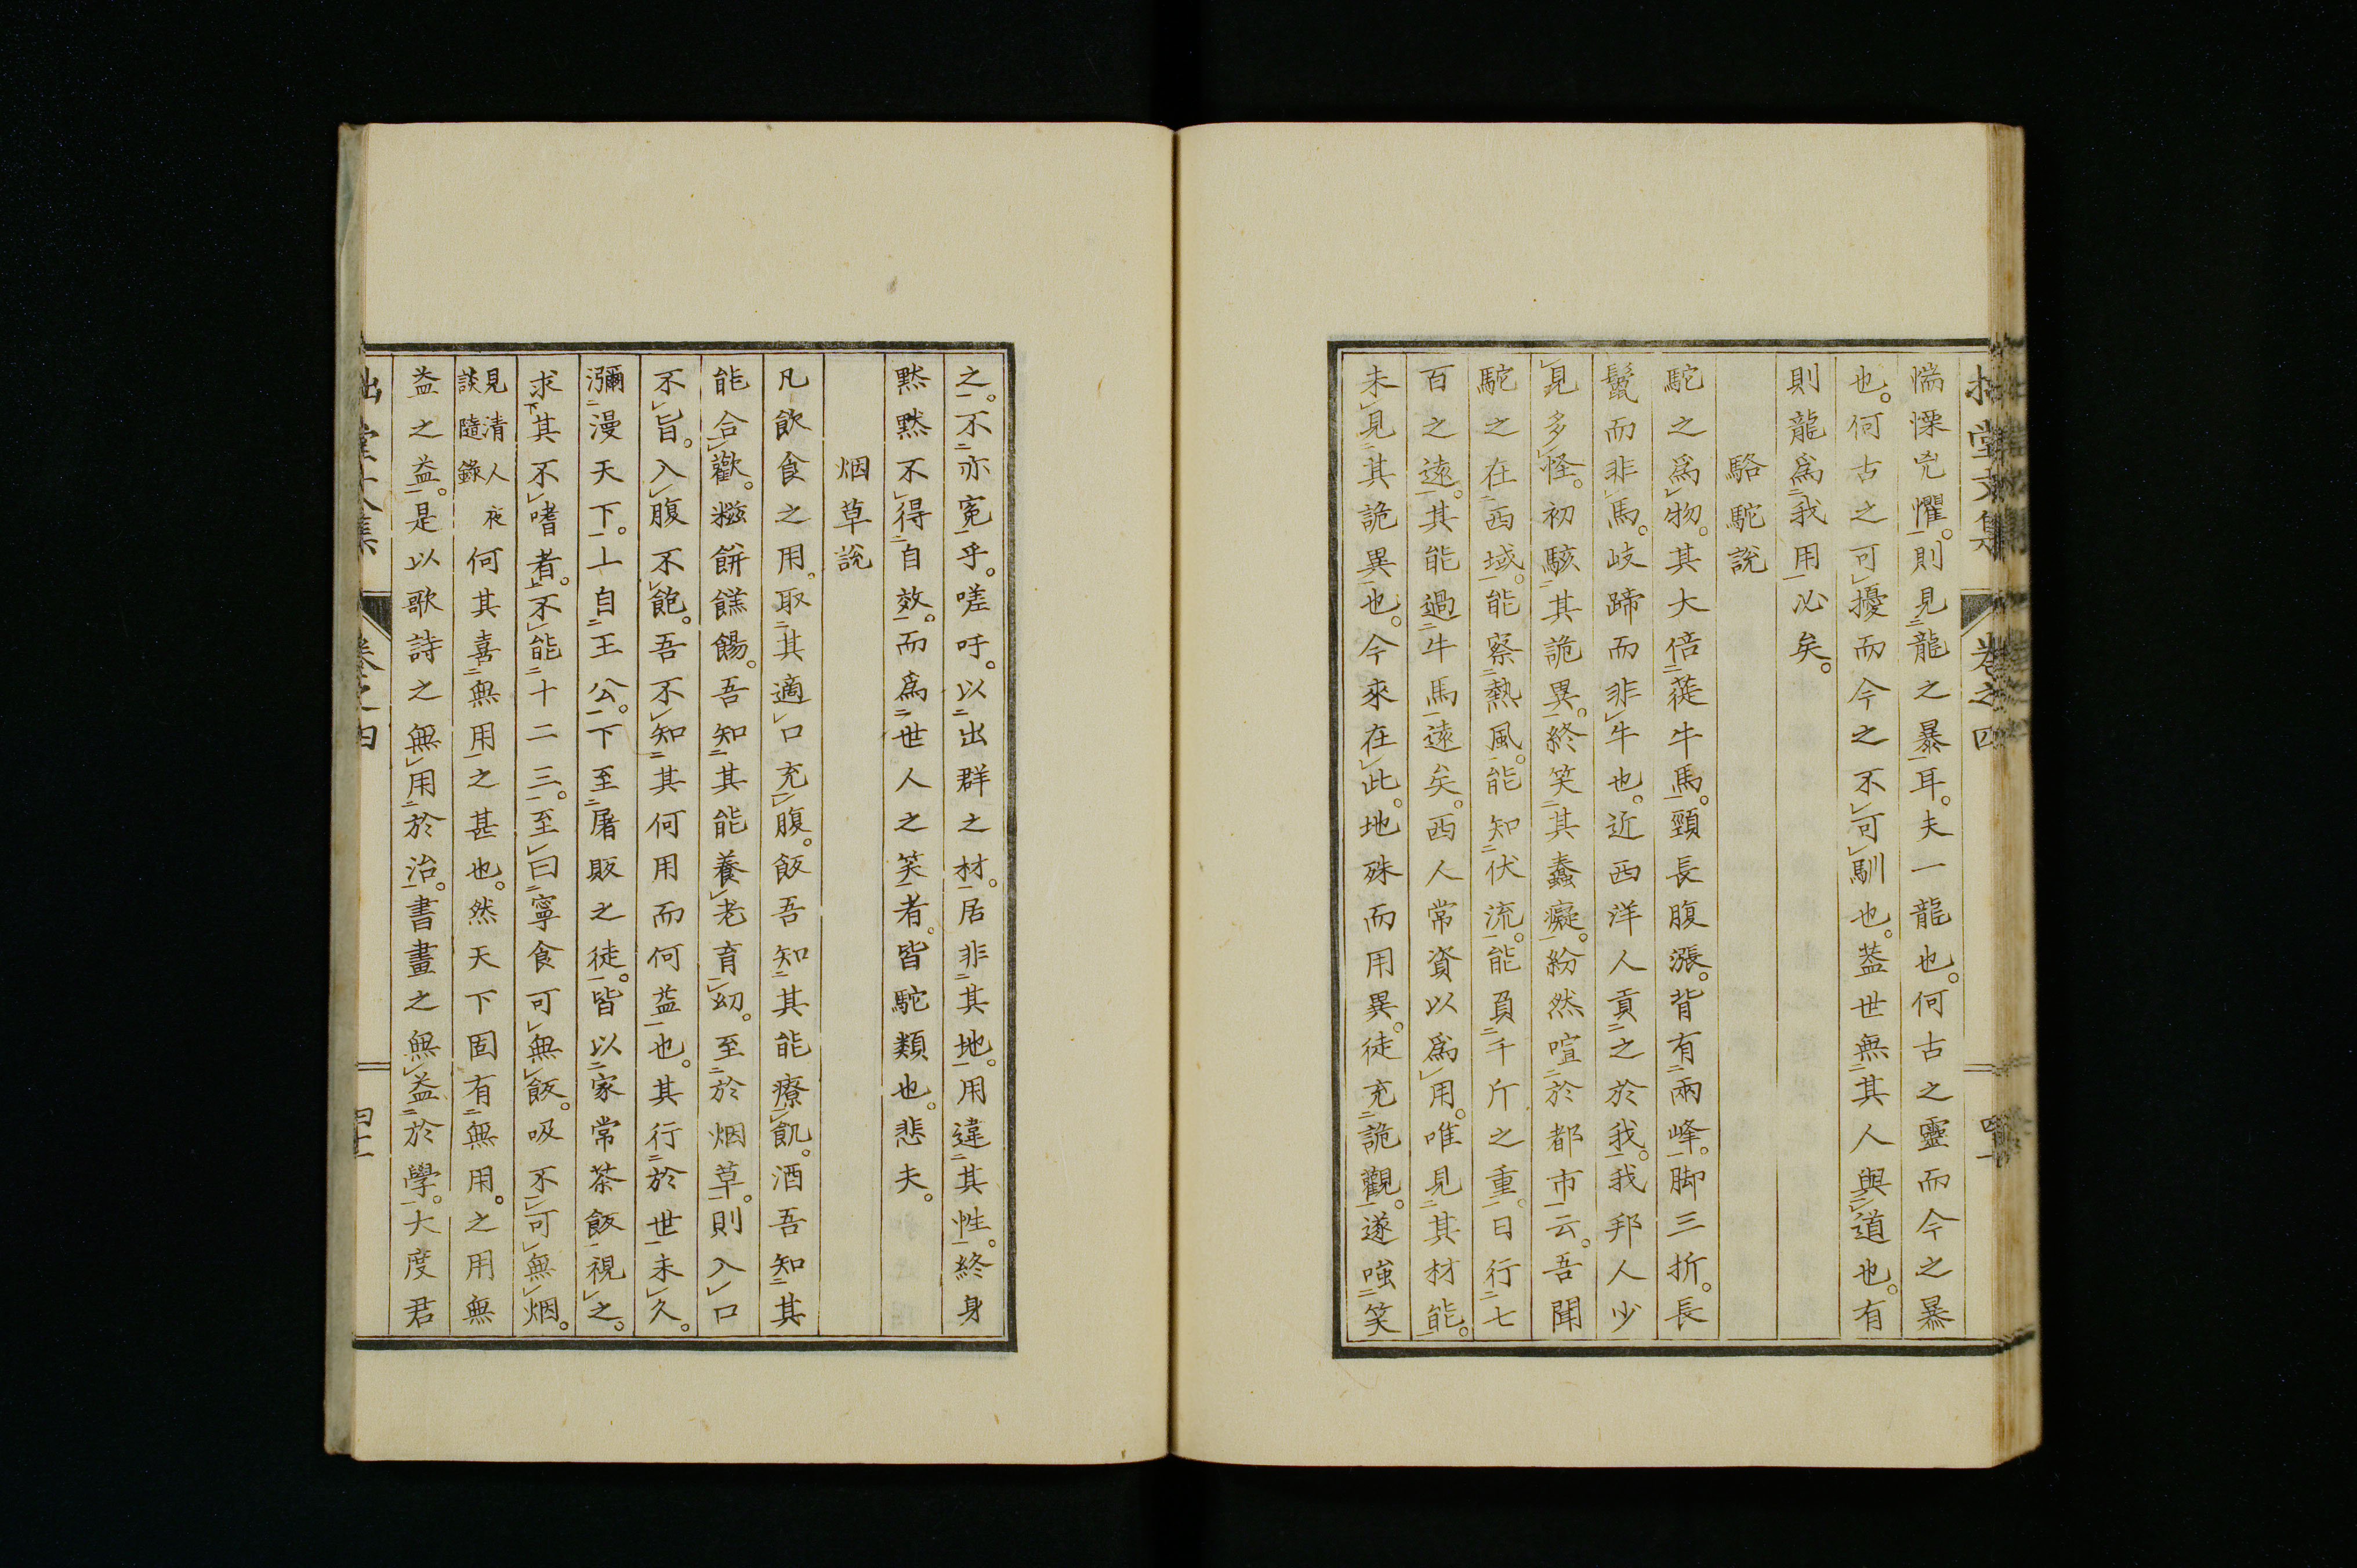 拙堂文集　卷之四
惴慄兇懼。則見龍之暴耳。夫一龍也。何古之靈而今之暴
也。何古之可擾而今之不可馴也。蓋世無其人與道也。有
則龍爲我用必矣。
駱駝說
駝之爲物。其大倍蓰牛馬。頸長腹漲。背有兩峰。脚三折。長
鬣而非馬。歧蹄而非牛也。近西洋人貢之於我。我邦人少
見多怪。初駭其詭異。終笑其蠢癡。紛然喧於都市云。吾聞
駝之在西域。能察熱風。能知伏流。能負千斤之重。日行七
百之遠。其能過牛馬遠矣。西人常資以爲用。唯見其材能。
未見其詭異也。今來在此。地殊而用異。徒充詭觀。遂嗤笑
之。不亦寃乎。嗟吁。以出群之材。居非其地。用違其性。終身
默默不得自效。而爲世人之笑者。皆駝類也。悲夫。
烟草說
凡飮食之用。取其適口充腹。飯吾知其能療飢。酒吾知其
能合歡。糍餠餻餳。吾知其能養老育幼。至於烟草。則入口
不旨。入腹不飽。吾不知其何用而何益也。其行於世未久。
瀰漫天下。上自王公。下至屠販之徒。皆以家常茶飯視之。
求其不嗜者。不能十二三。至曰寧食可無飯。吸不可無烟。
見清人夜談隨錄 何其喜無用之甚也。然天下固有無用。之用無
益之益。是以歌詩之無用於治。書畫之無益於學。大度君